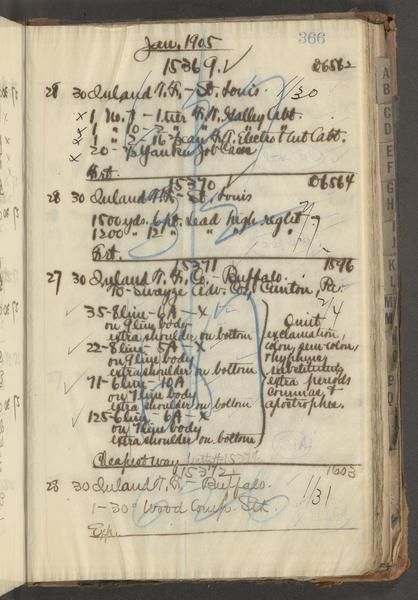 366
Jan. 1905
15369. 06562
28 30 Inland T. F. - St. Louis. 1/30
x 1 No. 7 - 1 tier Galley Cabt.
x 1 " 10 - 2 " "
Cut Cabt.
20 - 2/3 Yankee Job Cases
Frt.
15370 06564
28 30 Inland T. F. - St. Louis
1500 yds. 6 pt. Lead high reglet
1200 " 12 " " " "
Frt.
15371 1596
27 30 Inland T. F. Co. - Buffalo.
To - Swayze Adv. Co., Clinton,
2/4
35 - 8 line - 6A - x
on 9 line body
extra shoulder on bottom
22 - 8 line - 5A - x
on 9 line body
extra shoulder on bottom
71 - 6 line - 10A
on 7 line body
extra shoulder on bottom
125 - 6 line - 6A - x
on 7 line body
extra shoulder on bottom
Omit
exclamation,
colon, semi-colon,
hyphens,
substituting
extra periods
commas &
apostrophes.
Cheapest way
15372 1603
28 30 Inland T. F. - Buffalo.
1/31
1 - 30" Wood Comp. Stk.
Exp.
A
B
C
D
E
F
G
H
J
K
L
M